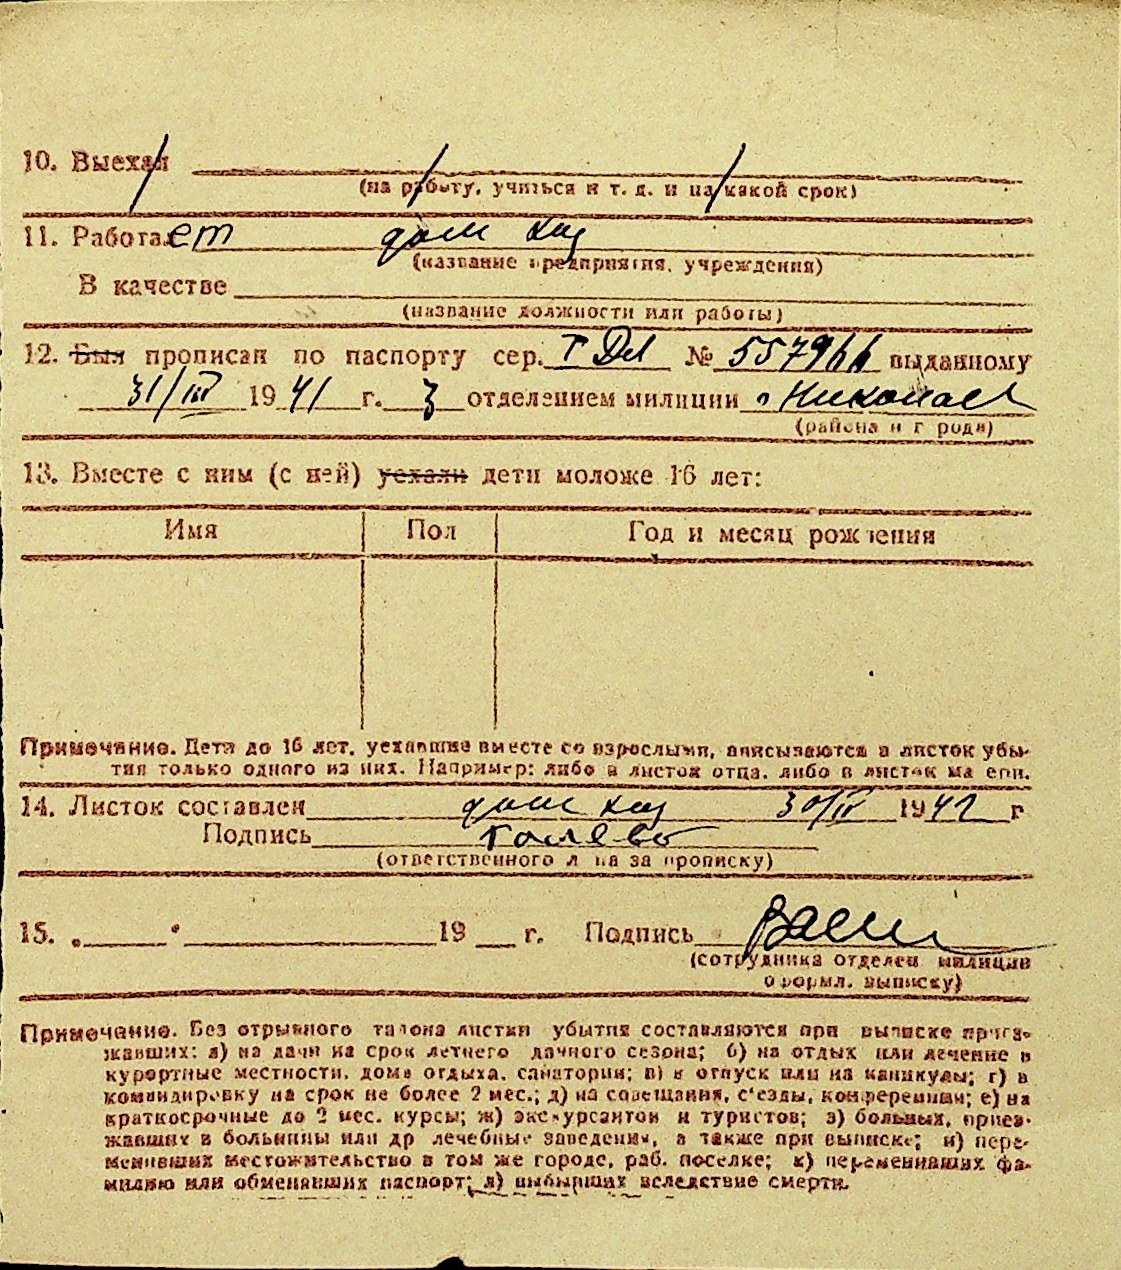 10. Выехал
(на работу, учиться и т. д. и на какой срок)
11. Работает дом хоз
(название предприятия, учреждения)
В качестве
(название должности или работы)
12. Был прописан по паспорту сер. № 557966 выданному
31/III 1941 г. 3 отделением милиции г Николаев
(района и города)
13. Вместе с ним (с ней) уехали дети моложе 16 лет:
Имя Пол Год и месяц рождения
Примечание. Дети до 16 лет, уехавшие вместе со взрослыми, вписываются в листок убы-
тия только одного из них. Например: либо в листок отца, либо в листок матери.
14. Листок составлен дом хоз 1942 г
Подпись
(ответственного лица за прописку)
15. „ “ 19 г. Подпись
(сотрудника отделен. милиции
оформл. выписку)
Примечание. Без отрывного талона листки убытия составляются при выписке приез-
жавших: а) на дачи на срок летнего дачного сезона; б) на отдых или лечение в
курортные местности, дома отдыха, санатории; в) в отпуск или на каникулы; г) в
командировку на срок не более 2 мес.; д) на совещания, с'езды, конференции; е) на
краткосрочные до 2 мес. курсы; ж) экскурсантов и туристов; з) больных, приез-
жавших в больницы или др лечебные заведения, а также при выписке; и) пере-
менивших местожительство в том же городе, раб. поселке; к) переменивших фа-
милию или обменявших паспорт; л) выбывших вследствие смерти.